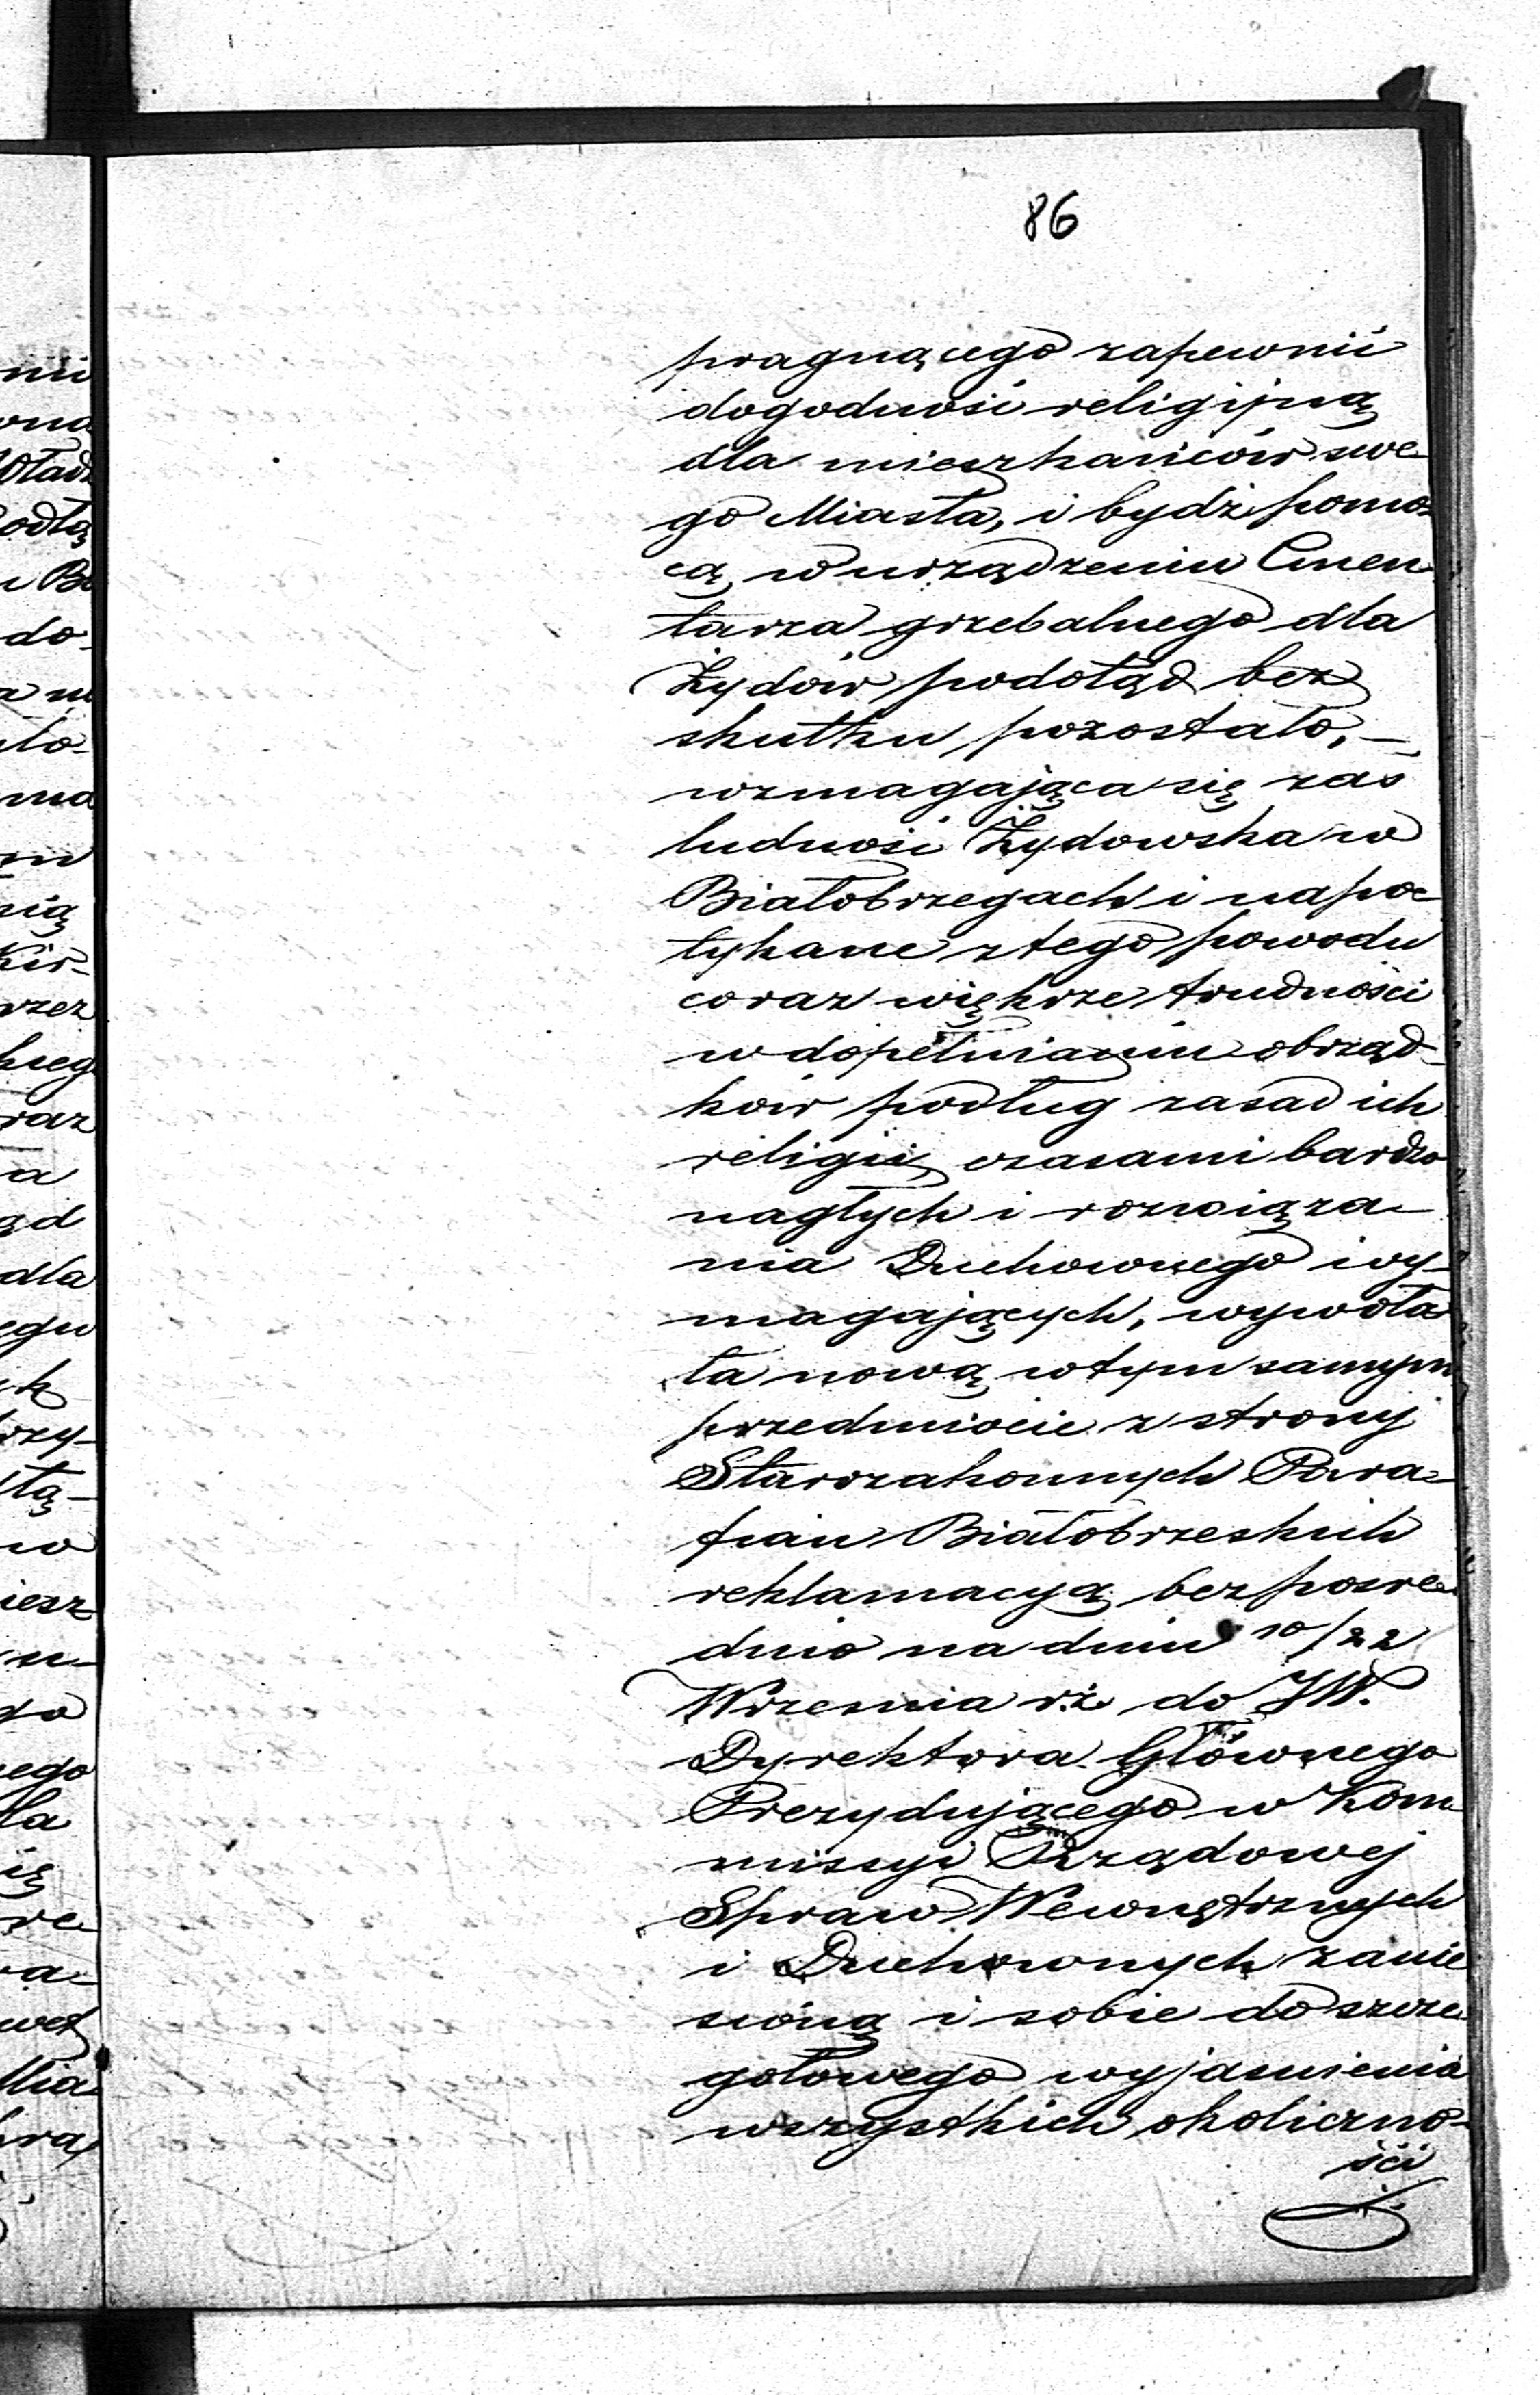 86
pragnącego zapewnić
dogodność religijną
dla mieszkańców swe-
go Miasta, i bydź pomo-
cą, w urządzeniu Cmen-
tarza grzebalnego dla
Żydów podotąd bez
skutku pozostało, —
wzmagająca się zaś
ludność Żydowska w
Białobrzegach i napo-
tykane z tego powodu
coraz większe trudności
w dopełnianiu obrząd-
ków podług zasad ich
religii, czasami bardzo
nagłych i rozwiąza-
nia Duchownego wy-
magających, wywoła-
ła nową w tym samym
przedmiocie z strony
Starozakonnych Para-
fian Białobrzeskich
reklamacyą bezpośre-
dnio na dniu 10/22
Wrzesnia r.z. do JW.
Dyrektora Głównego
Prezydującego w Kom-
missyi Rządowej
Spraw Wewnętrznych
i Duchownych zanie-
sioną i sobie do szcze-
gołowego wyjasnienia
wszystkich okoliczno-
ści